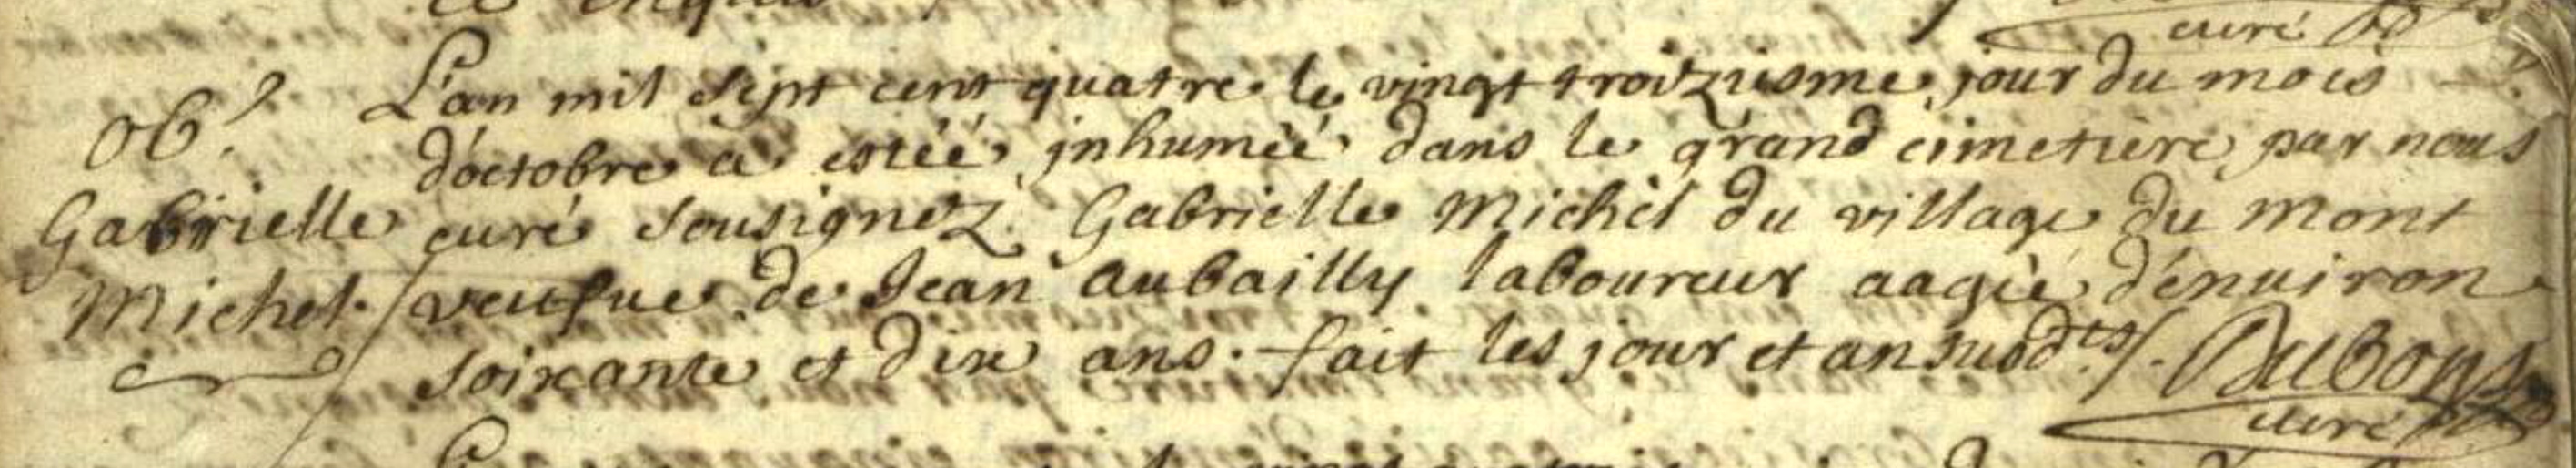 curé
L'an mil sept cent quatre le vingt troizniesme jour du mois
ob.
d'octobre a estéé jnhuméé dans le grand cimetiere par nous
Gabrielle curé sousignez Gabrielle Michel du village du Mont
Michel veufue de Jean Aubailly laboureur aagéé d'enuiron
soixante et dix ans. fait les jour et an susdts. Dubouys
curé